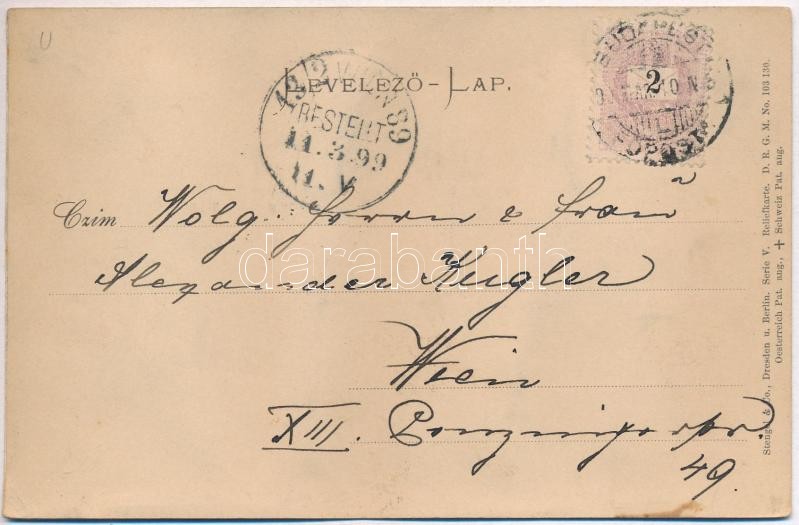 U
LEVELEZŐ-LAP.
BUDAPEST
2
13/2 WIEN 89
BESTELLT
11.3.99
11.V
Czim Wolg. Herrn & Frau
Alexander Kugler
Wien
XIII. Penzingerstr.
49.
darabanth
Stengel & Co., Dresden u. Berlin. Serie V. Reliefkarte. D. R. G. M. No. 103 130.
Oesterreich Pat. ang., + Schweiz Pat. ang.